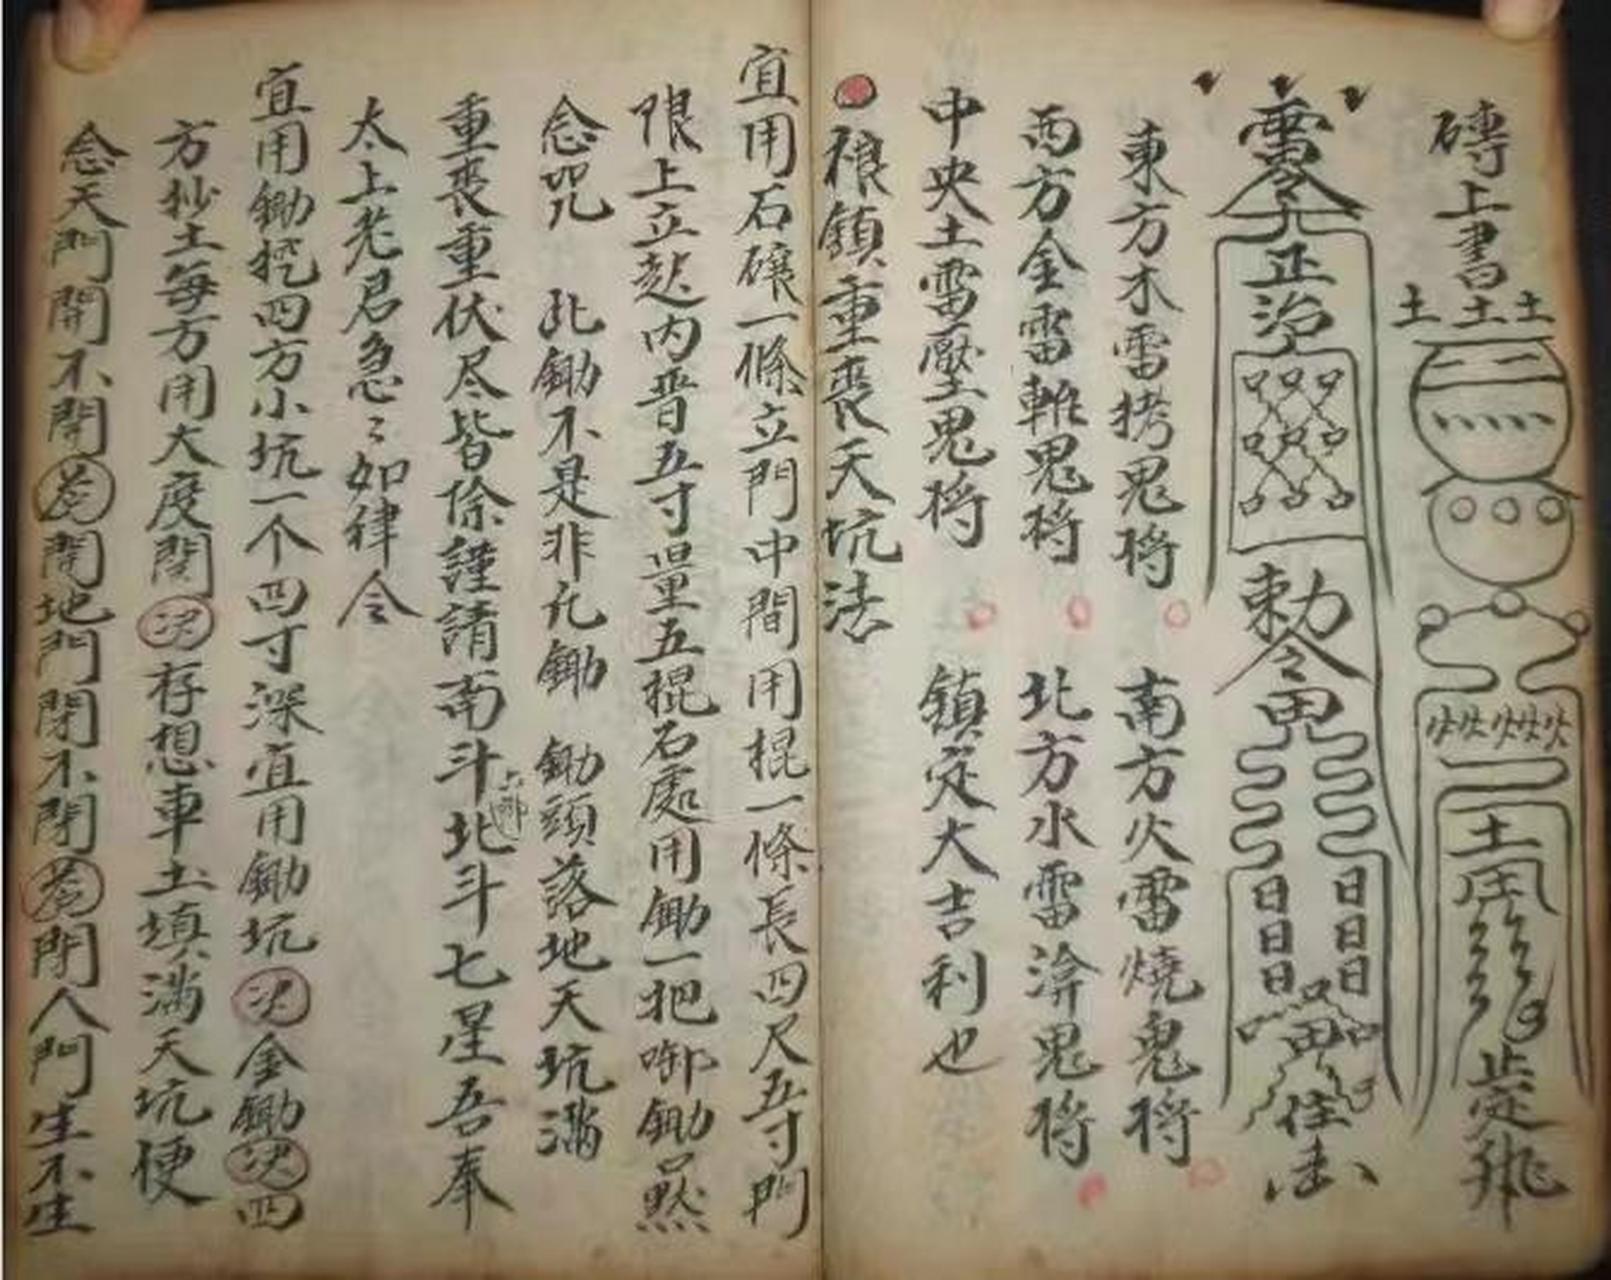 磚上書
土土土
土
止定飛
雷令
正治
勅令
田
日日日
日日日
田
住
東方木雷拷鬼将 南方火雷燒鬼将
西方金雷斬鬼将 北方水雷渰鬼将
中央土雷壓鬼将 鎮定大吉利也
禳鎮重喪天坑法
宜用石磉一條立門中間用棍一條長四尺五寸門
限上立起内晋五寸量五棍石處用鋤一把啣鋤口黙
念咒 此鋤不是非凡鋤 鋤頭落地天坑滿
重喪重伏尽皆除謹請南斗六郎北斗七星吾奉
太上老君急〻如律令
宜用鋤挖四方小坑一个四寸深宜用鋤坑 次 金鋤 次 四
方抄土每方用大度開 次 存想車土填滿天坑便
念天門開不開荅開地門閉不閉荅閉人門生不生